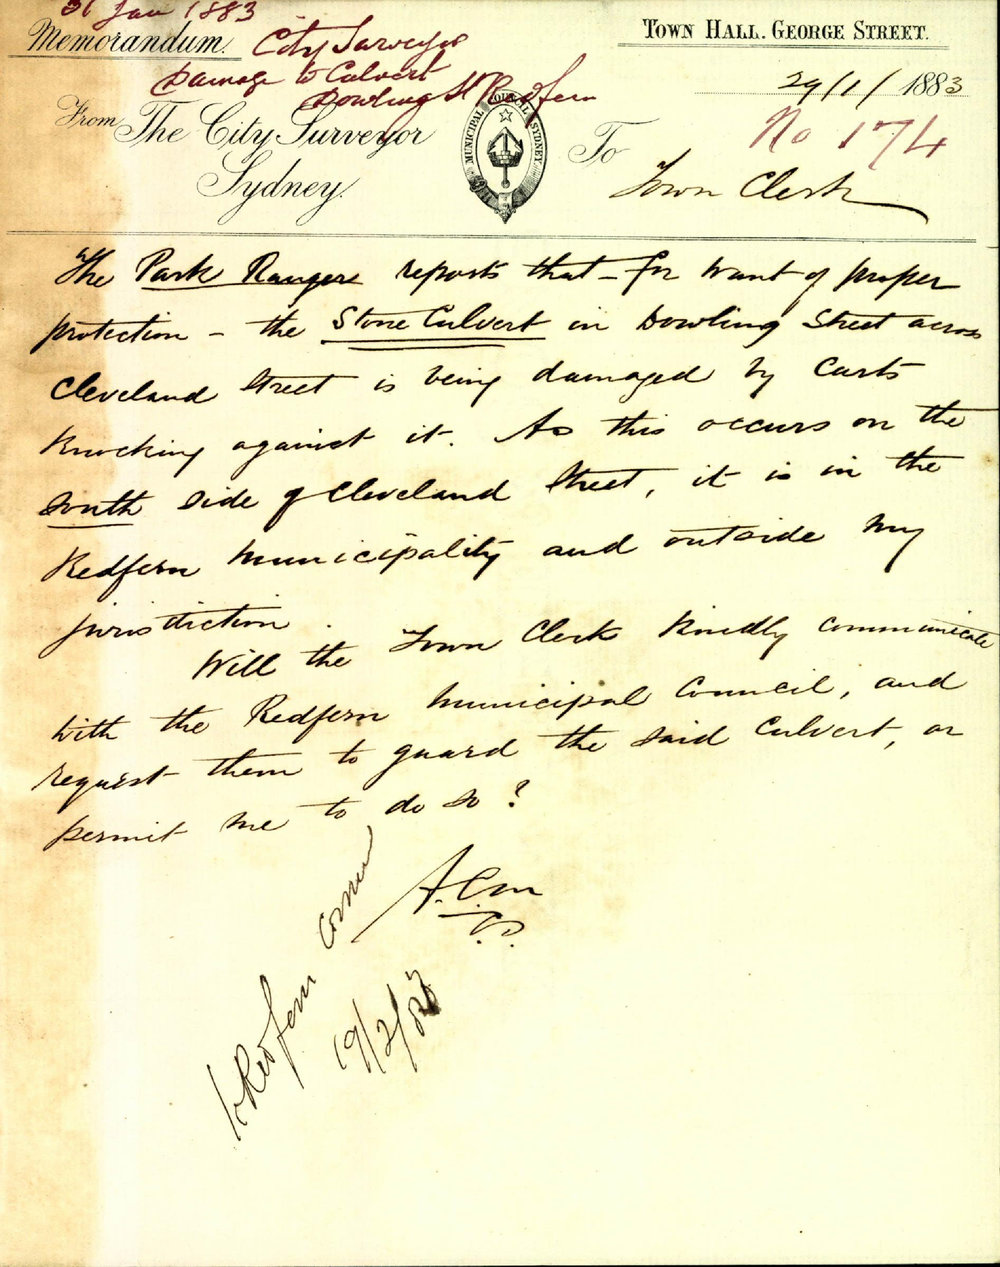 31 Jan 1883
Memorandum.
City Surveyor
Damage to Culvert
Dowling St Redfern
TOWN HALL. GEORGE STREET.
29/1/1883
No 174
From The City Surveyor
Sydney.
MUNICIPAL COUNCIL SYDNEY
To
Town Clerk
The Park Ranger reports that - for want of proper
protection - the Stone Culvert in Dowling Street across
Cleveland Street is being damaged by Carts
knocking against it. As this occurs on the
south side of Cleveland Street, it is in the
Redfern Municipality and outside my
jurisdiction.
Will the Town Clerk kindly communicate
with the Redfern Municipal Council, and
request them to guard the said Culvert, or
permit me to do so?
C.S.
Redfern
19/2/83